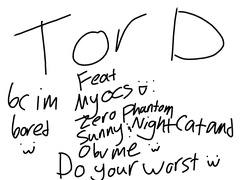 T or D
Feat
bc im my ocs :
bored Zero Phantom
Sunny : NightCat and
Obv me :)
Do your worst :)